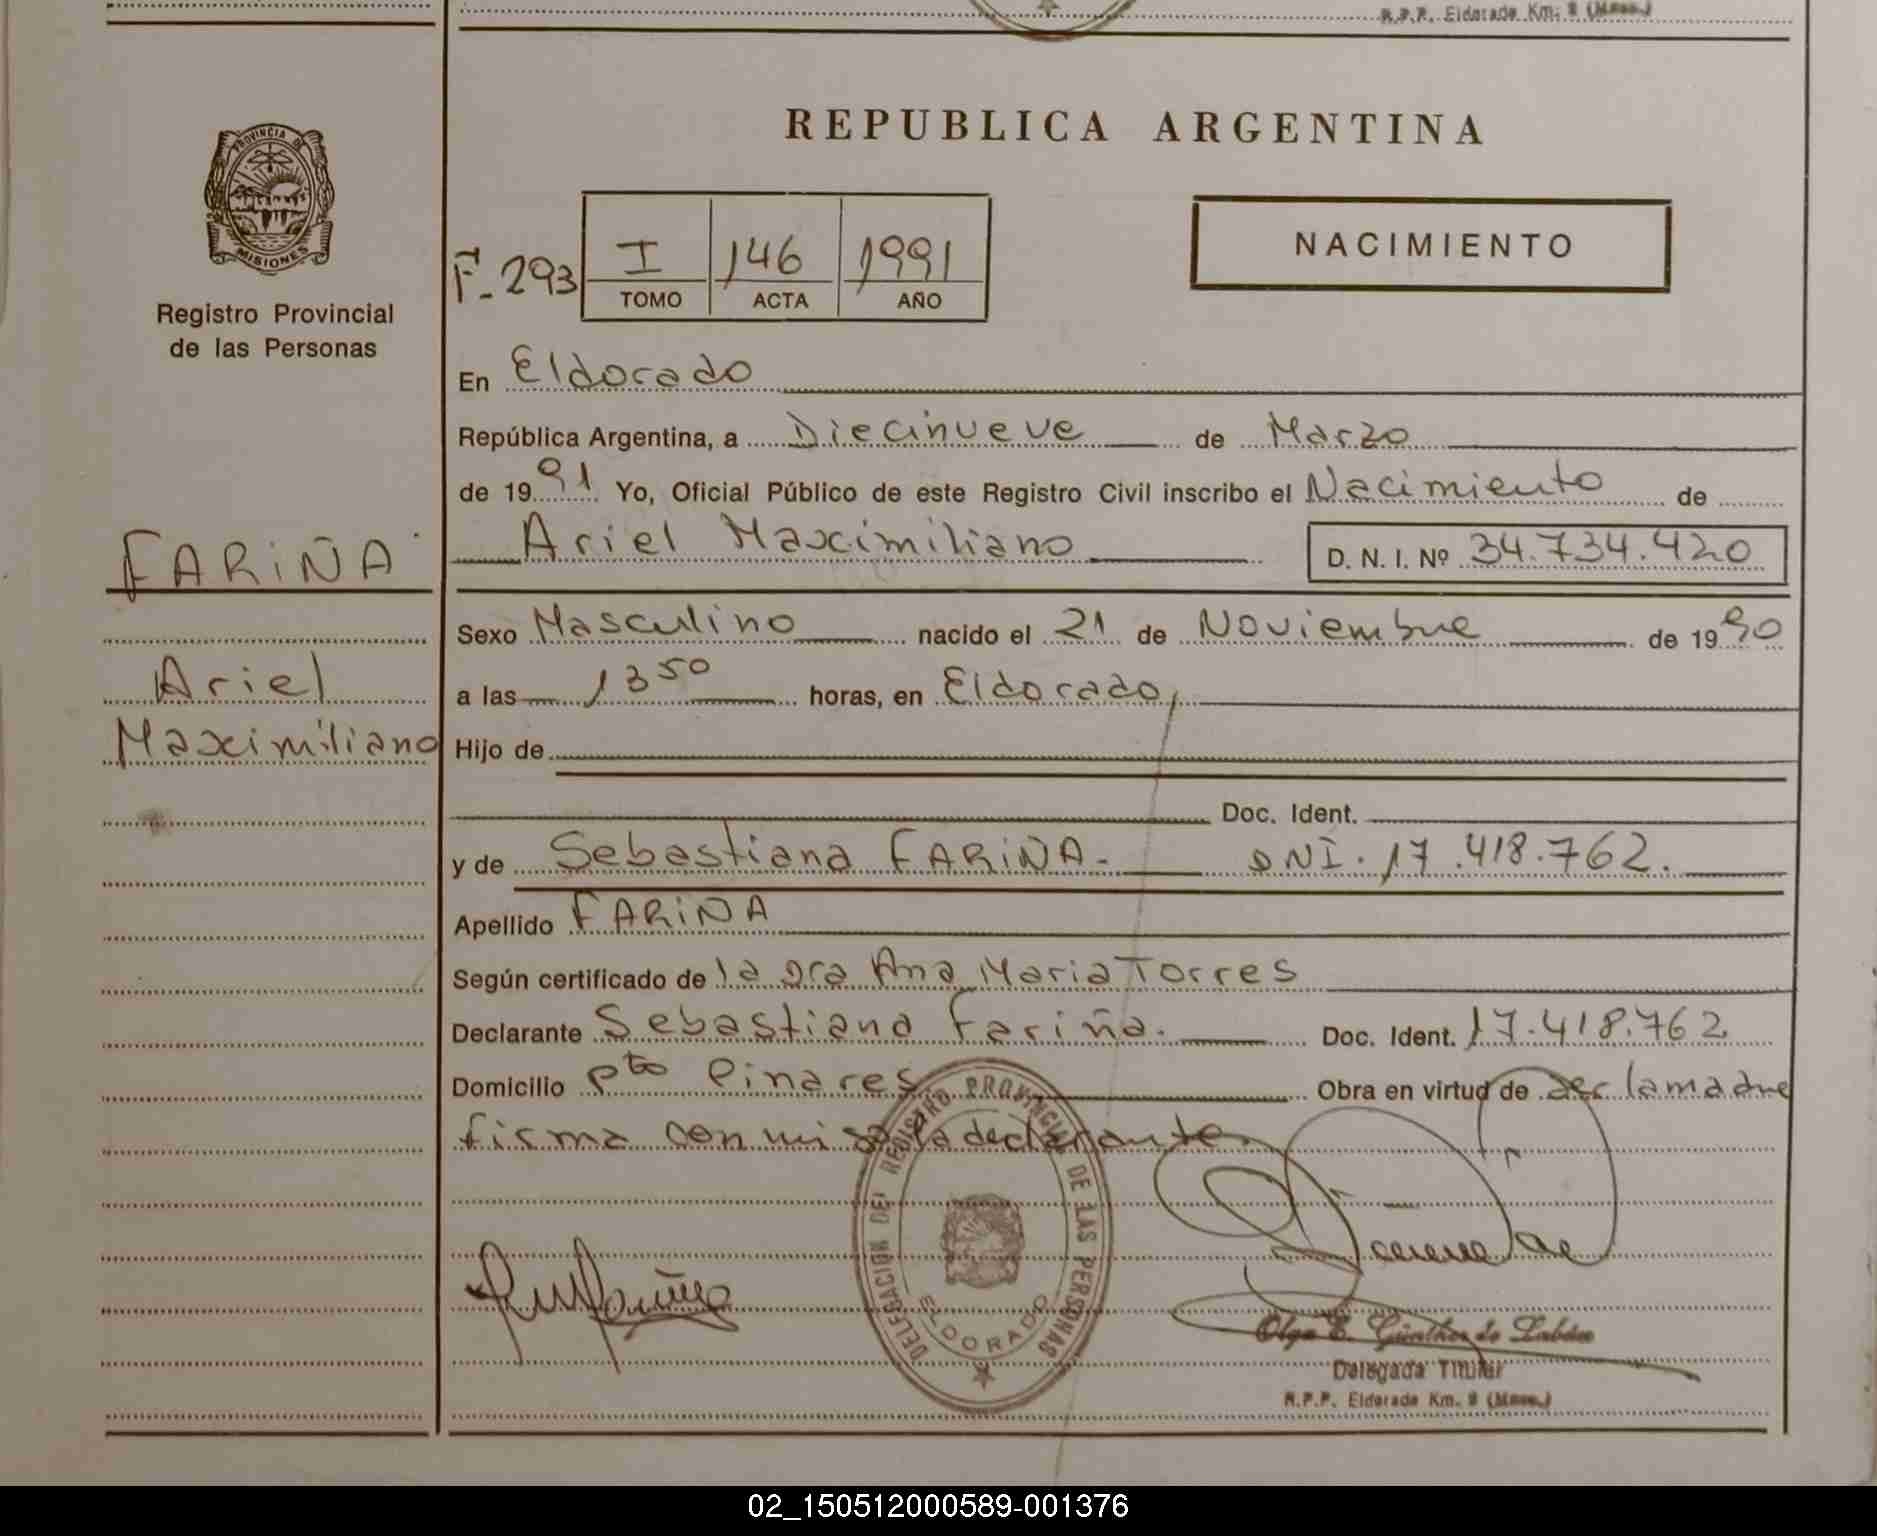 R.P.P. Eldorado Km. 9 (Mnes.)
REPUBLICA ARGENTINA
PROVINCIA DE MISIONES
Registro Provincial
de las Personas
F-293
I 146 1991
TOMO ACTA AÑO
NACIMIENTO
En Eldorado
República Argentina, a Diecinueve de Marzo
de 1991 Yo, Oficial Público de este Registro Civil inscribo el Nacimiento de
Ariel Maximiliano D. N. I. Nº 34.734.420
FARIÑA
Ariel
Maximiliano
Sexo Masculino nacido el 21 de Noviembre de 1990
a las 13 50 horas, en Eldorado,
Hijo de
Doc. Ident.
y de Sebastiana FARIÑA- DNI. 17.418.762.
Apellido FARIÑA
Según certificado de la Dra Ana Maria Torres
Declarante Sebastiana Fariña. Doc. Ident. 17.418.762
Domicilio Pto Pinares Obra en virtud de ser la madre
firma con migo la declarante.
DELEGACION DEL REGISTRO PROVINCIAL DE LAS PERSONAS
ELDORADO
Olga E. Günther de
Delegada Titular
R.P.P. Eldorado Km. 9 (Mnes.)
02_150512000589-001376